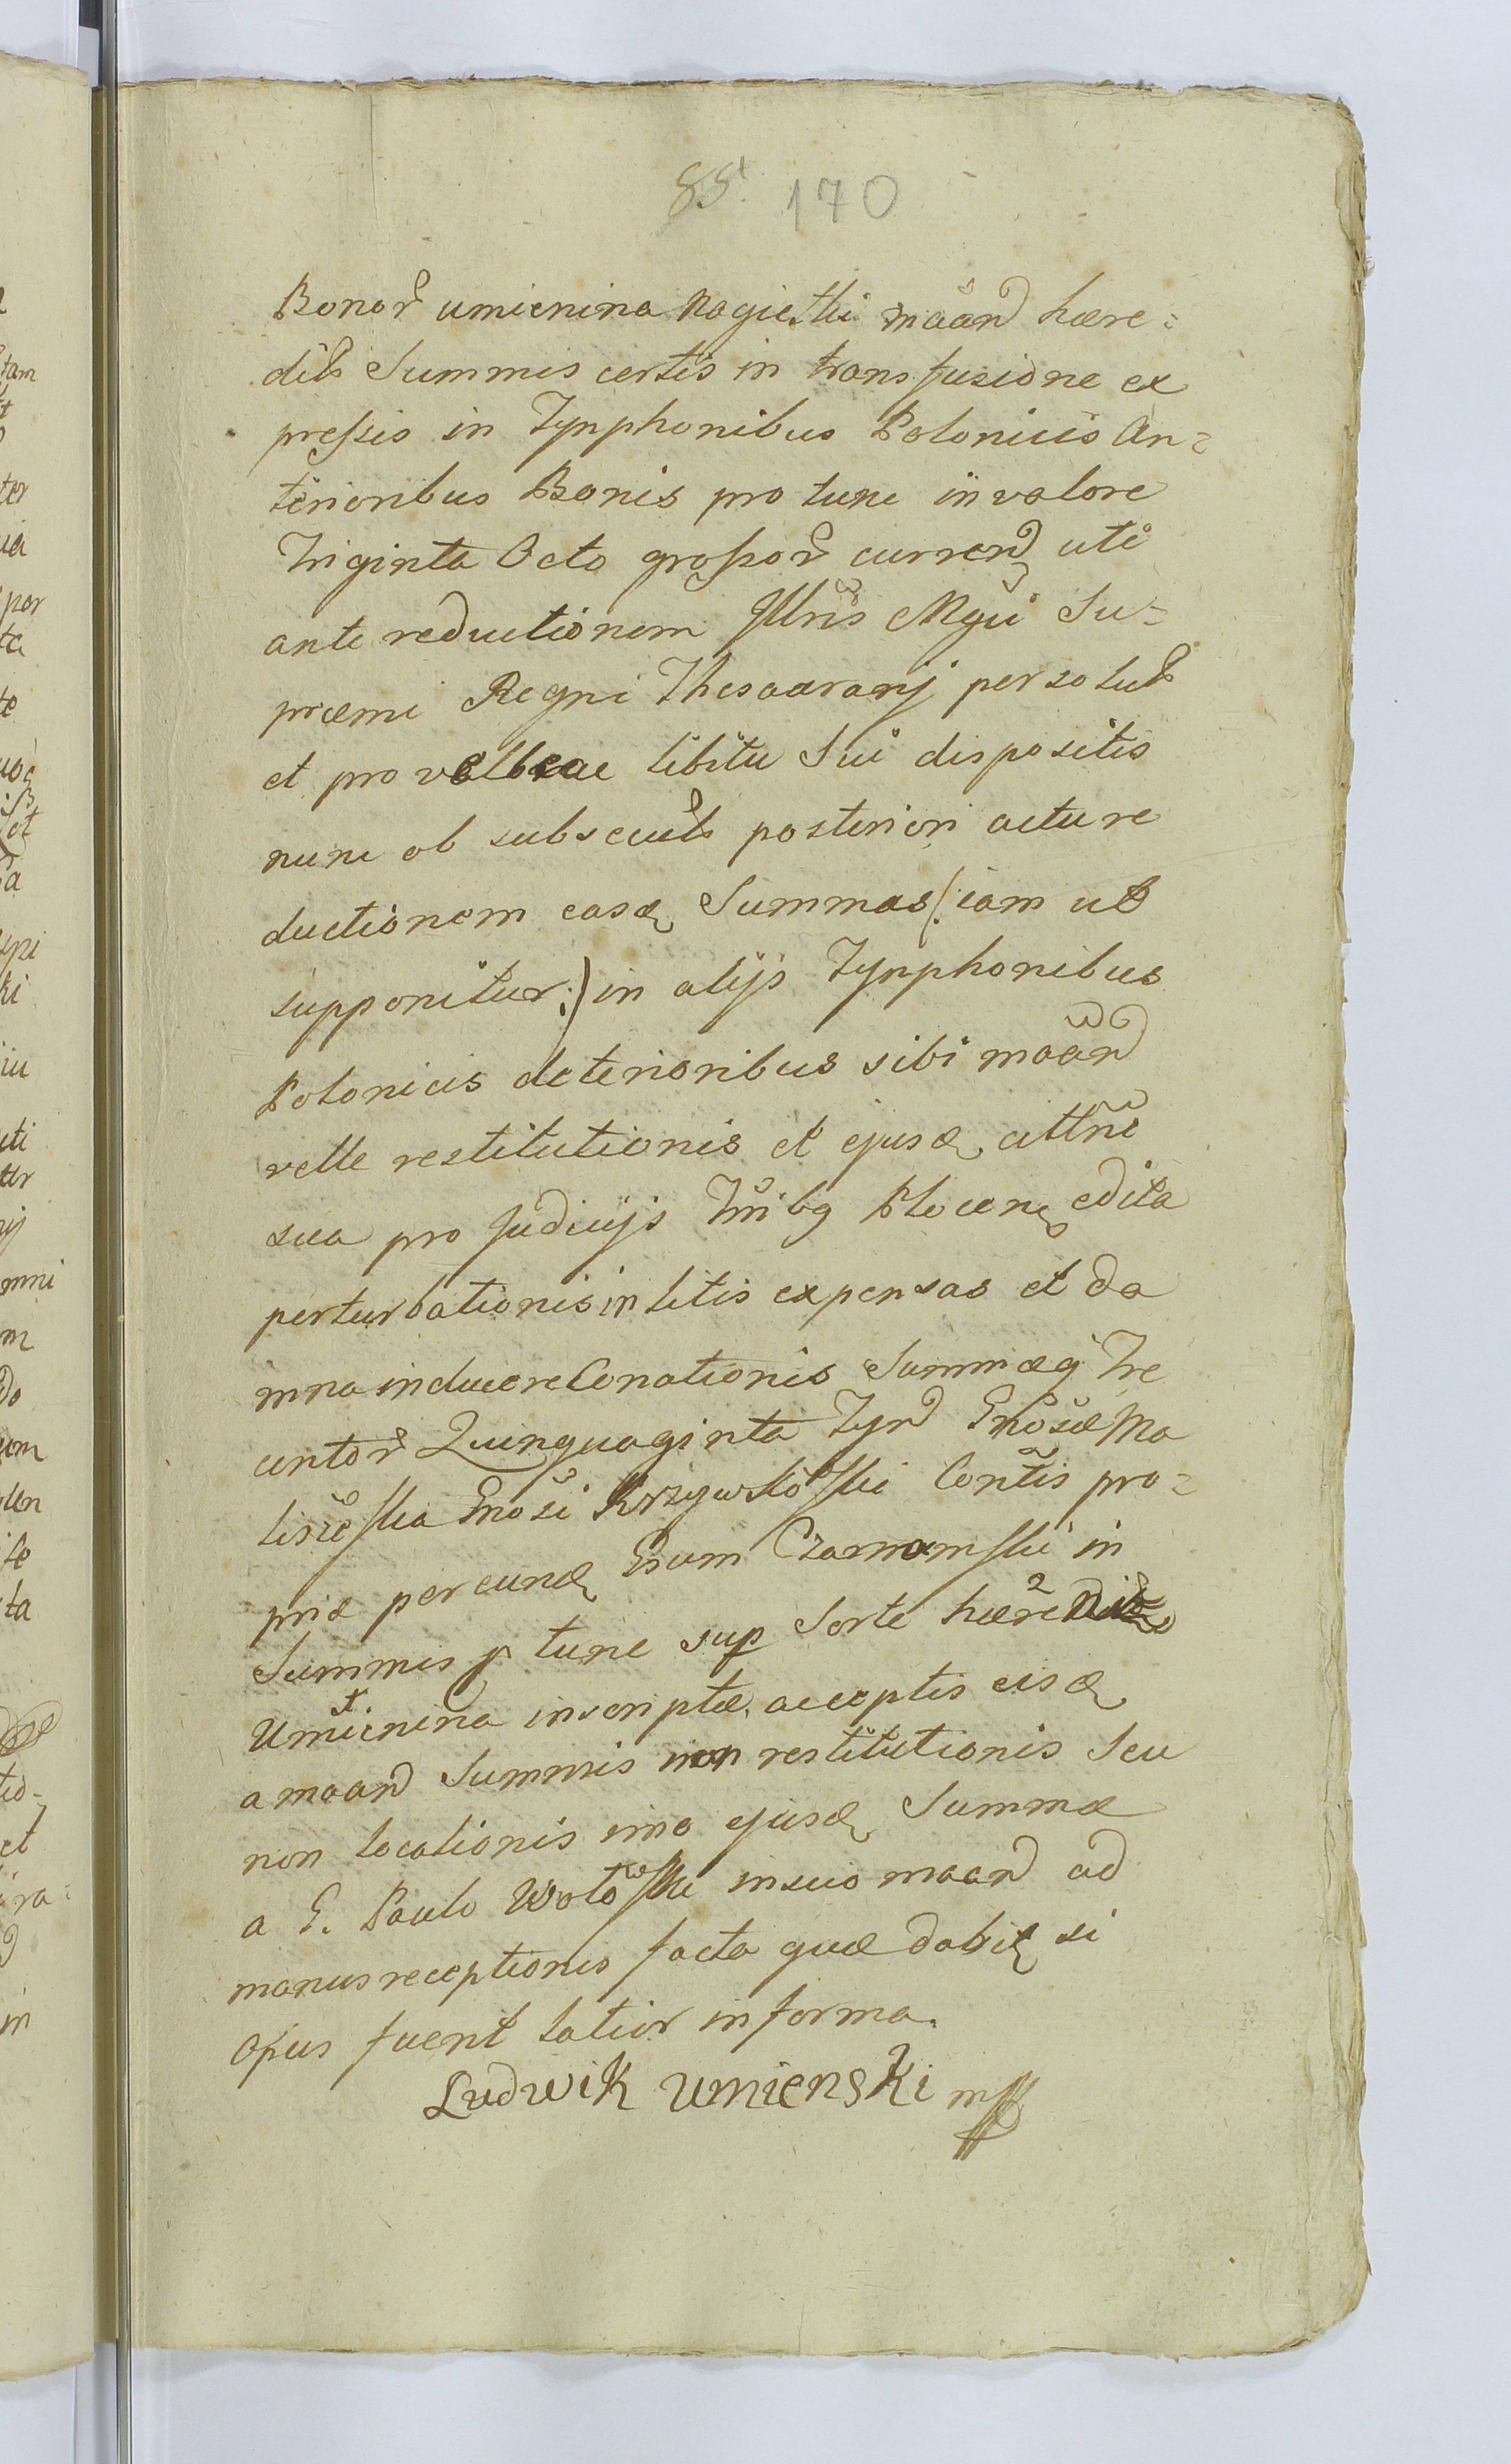 85. 170
Bonor umienina Nagietki mãand hære=
dib Summis certis in transfusione ex
preſsis in Tynphonibus Polonicis An=
terioribus Bonis pro tunc in valore
Triginta Octo groſsor currend uti
ante reductionem Illris Mgci Su=
præmi Regni Thesaurarij persolut
et pro velle ac libitu sui dispositis
nunc ob subsecut posteriori actu re
ductionem easd Summas (:iam ut
supponitur:) in alijs Tynphonibus
Polonicis deterioribus sibi mãand
velle restitutionis et ejusd cittne
sua pro Judicijs Trribq Plocen edita
perturbationis in litis expensas et da
mna inducere Conationis Summæq Tre
centor Quinquaginta Tynd Gnosæ Ma
Gnosi Krzywkoſki Contis pro=
pria per eund Gsum Czarnomſki in
Summis p tunc sup Sorte hære
Umienina inscriptæ acceptis eisd
a maand Summis non restitutionis Seu
non locationis imo ejusd Summæ
a G. Paulo Woloſki in suo maand ad
manus receptionis facta quæ dabit si
opus fuerit latior informa.
Ludwik Umienski mp